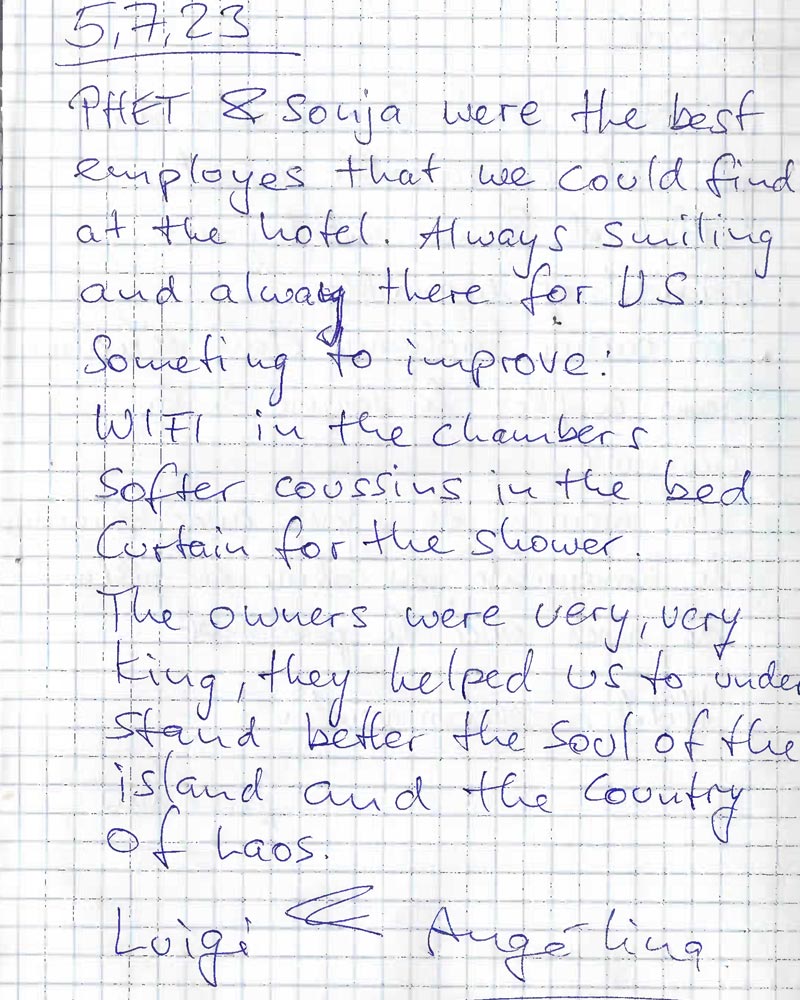 5,7,23
PHET & Sonja were the best
employes that we could find
at the hotel. Always smiling
and alway there for US.
Someting to improve:
WIFI in the chambers
Softer coussins in the bed
Curtain for the shower.
The owners were very, very
king, they helped us to under
stand better the soul of the
island and the country
of Laos.
Luigi & Angélina